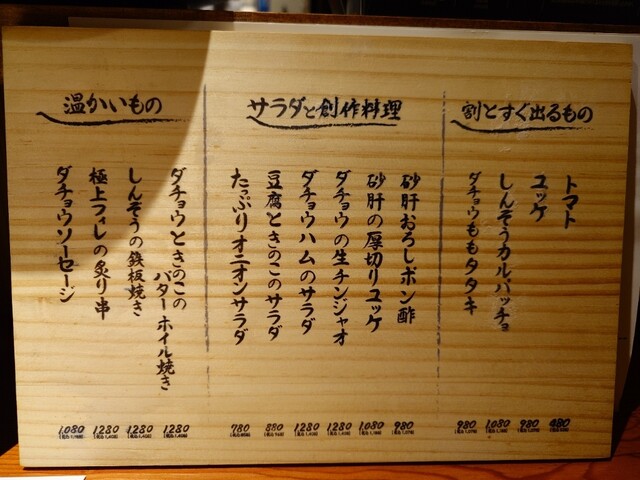 割とすぐ出るもの
トマト
480
ユッケ
980
しんぞうカルパッチョ
1080
ダチョウももタタキ
980
サラダと創作料理
砂肝おろしポン酢
980
砂肝の厚切りユッケ
1080
ダチョウの生チンジャオ
1280
ダチョウハムのサラダ
1280
豆腐ときのこのサラダ
880
たっぷりオニオンサラダ
780
温かいもの
ダチョウときのこの
バターホイル焼き
1280
しんぞうの鉄板焼き
1280
極上フィレの炙り串
1280
ダチョウソーセージ
1080